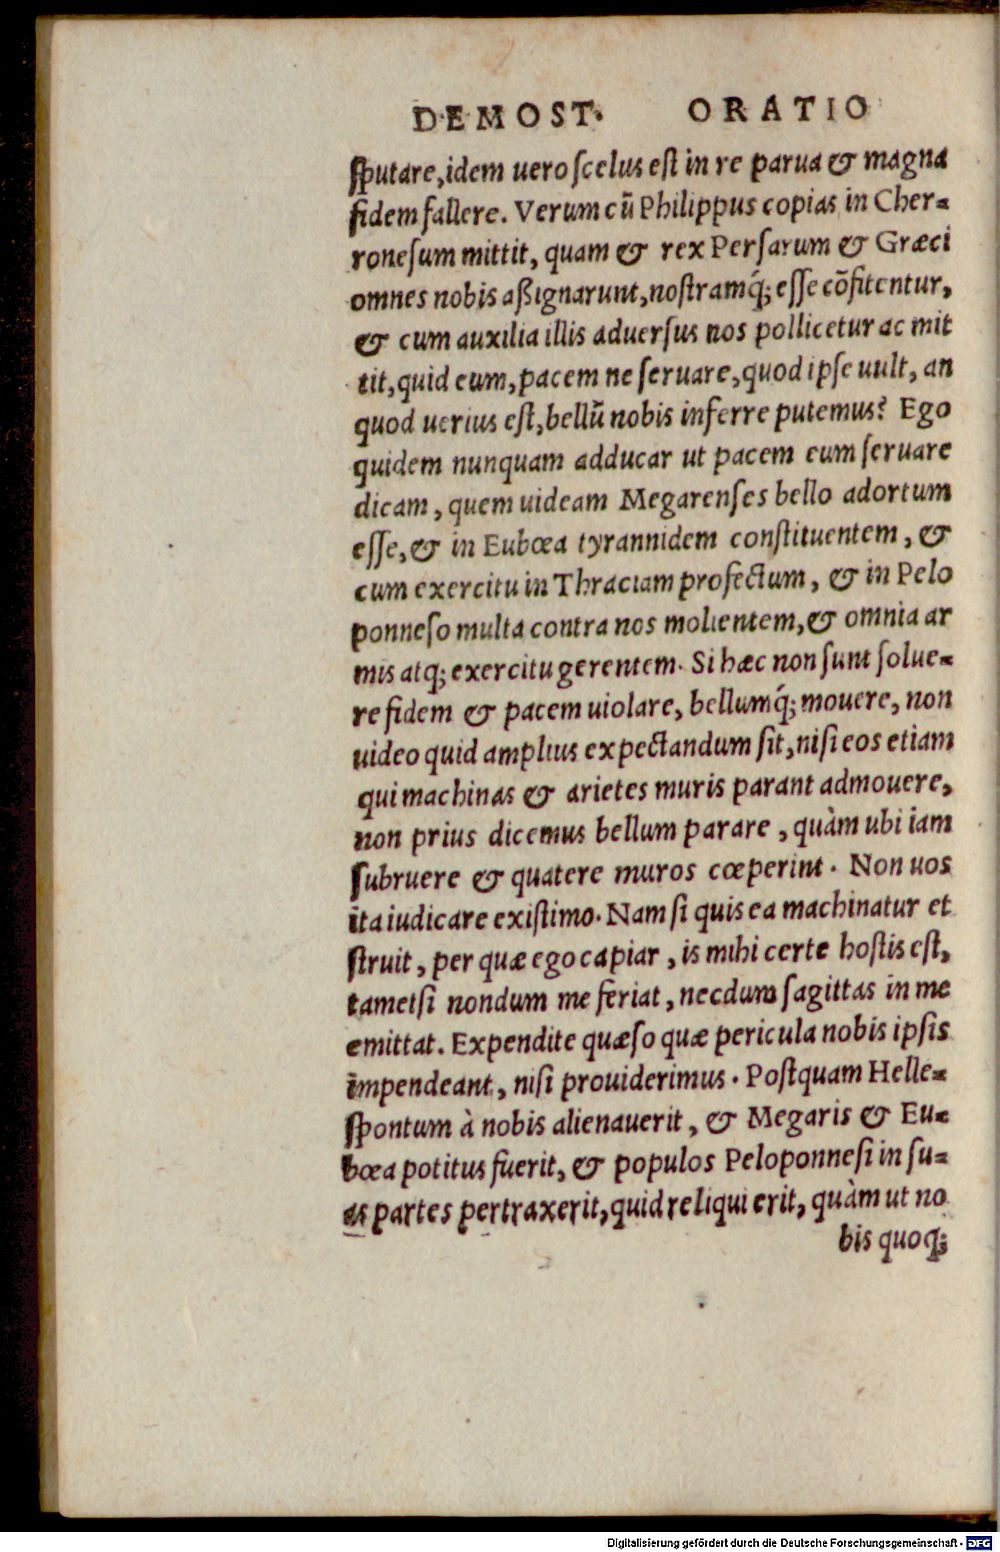 DEMOST. ORATIO
ſputare, idem uero ſcelus eſt in re parua & magna
fidem fallere. Verum cũ Philippus copias in Cher-
roneſum mittit, quam & rex Perſarum & Græci
omnes nobis aßignarunt, noſtramq́; eſſe cõfitentur,
& cum auxilia illis aduerſus nos pollicetur ac mit
tit, quid eum, pacem ne ſeruare, quod ipſe uult, an
quod uerius eſt, bellũ nobis inferre putemus? Ego
quidem nunquam adducar ut pacem eum ſeruare
dicam, quem uideam Megarenſes bello adortum
eſſe, & in Eubœa tyrannidem conſtituentem, &
cum exercitu in Thraciam profectum, & in Pelo
ponneſo multa contra nos molientem, & omnia ar
mis atq; exercitu gerentem. Si hæc non ſunt ſolue-
re fidem & pacem uiolare, bellumq́; mouere, non
uideo quid amplius expectandum ſit, niſi eos etiam
qui machinas & arietes muris parant admouere,
non prius dicemus bellum parare, quàm ubi iam
ſubruere & quatere muros cœperint. Non uos
ita iudicare exiſtimo. Nam ſi quis ea machinatur et
ſtruit, per quæ ego capiar, is mihi certe hoſtis eſt,
tametſi nondum me feriat, necdum ſagittas in me
emittat. Expendite quæſo quæ pericula nobis ipſis
impendeant, niſi prouiderimus. Poſtquam Helle-
ſpontum à nobis alienauerit, & Megaris & Eu-
bœa potitus fuerit, & populos Peloponneſi in ſu-
as partes pertraxerit, quid reliqui erit, quàm ut no
bis quoq;
Digitalisierung gefördert durch die Deutsche Forschungsgemeinschaft - DFG